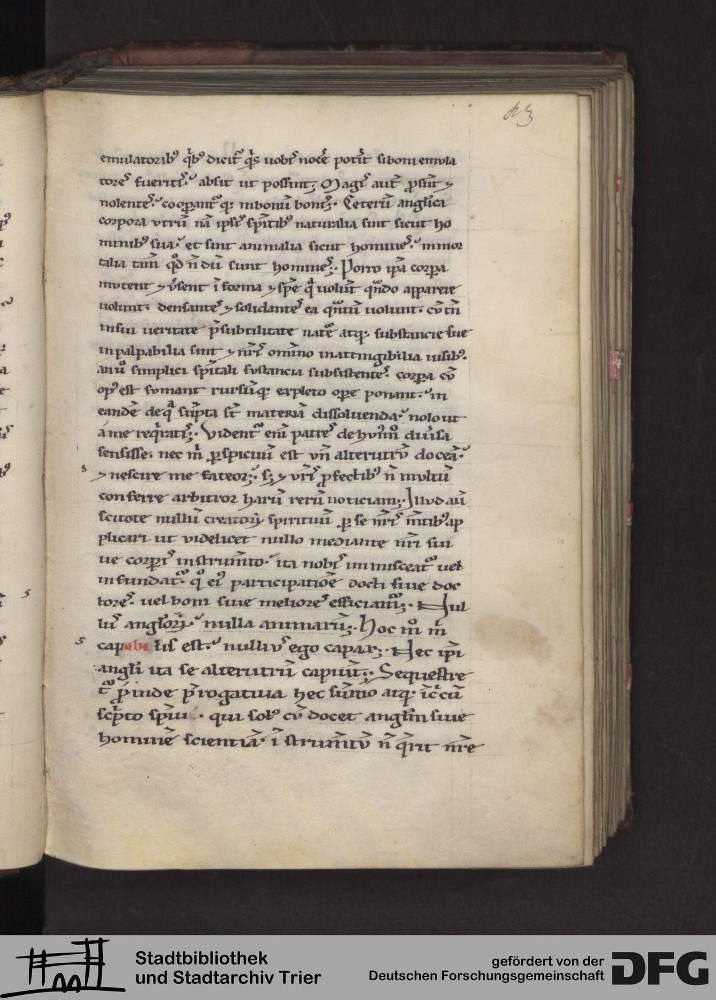 43
emulatorib⁹ q̄b⁹ dicit᷑ q̄s uobis noce᷑ potit si boni emula
tores fueritis. absit ut possint; Magis aut̄ prosūt ⁊
nolentes. coopant᷑ q; in bonū bonis. Ceterū anglica
corpora utrū nā ipsis spiritib⁹ naturalia sint sicut ho
minib⁹ sua. et sint animalia sicut homines. inmor
talia tam̄ qd̄ n̄ dū sunt homines. Porro ip̄a corpora
mutent ⁊ ūsent ī forma ⁊ spē q̄ uolūt qn̄do apparere
uolunt. densantes ⁊ solidantes ea qn̄tū uolunt. cū tn̄
in sui ueritate p̄ subtilitate nature atq; substancie sue
inpalpabilia sint ⁊ nr̄is om̄ino inattingibilia uisib⁹.
an ū simplici sp̄itali sustancia subsistentes. corpora cū
op⁹ est sumant rursūq; expleto opere ponant. in
eandē de q̄ sūpta sт̄ materiā dissoluenda. nolo ut
a me reqratis. Vident᷑ eni patres de hui⁹mōi diūsa
sensisse. nec m̄ perspicuū est un̄ alterutrū doceā.
⁊ nescire me fateor. s; ⁊ ur̄is profectib⁹ n̄ multū
conferre arbitror harū rerū noticiam. Illud aū
scitote nullū creatorū spirituū per se nr̄is m̄tib⁹ ap
plicari ut uidelicet nullo mediante nr̄i sui
ue corporis instrumīto. ita nobis inmisceat᷑ uel
infundat᷑. q̄ ei⁹ participatiōe docti siue doc
tores. uel boni siue meliores efficiam᷑. Nul
lus anglorū. nulla animarū. Hoc mō m̄
capabilis est. nulli⁹ ego capax. Nec ip̄i
angli ita se alterutrū capiūt; Sequestre
t᷑ proinde p̄rogatiua hec sūmo atq; īcircū
scripto sp̄iui. qui sol⁹ cū docet anglm̄ siue
hominē scientiā. īstrumētū n̄ q̄rit nr̄e
Stadtbibliothek
und Stadtarchiv Trier
gefördert von der
Deutschen Forschungsgemeinschaft
DFG